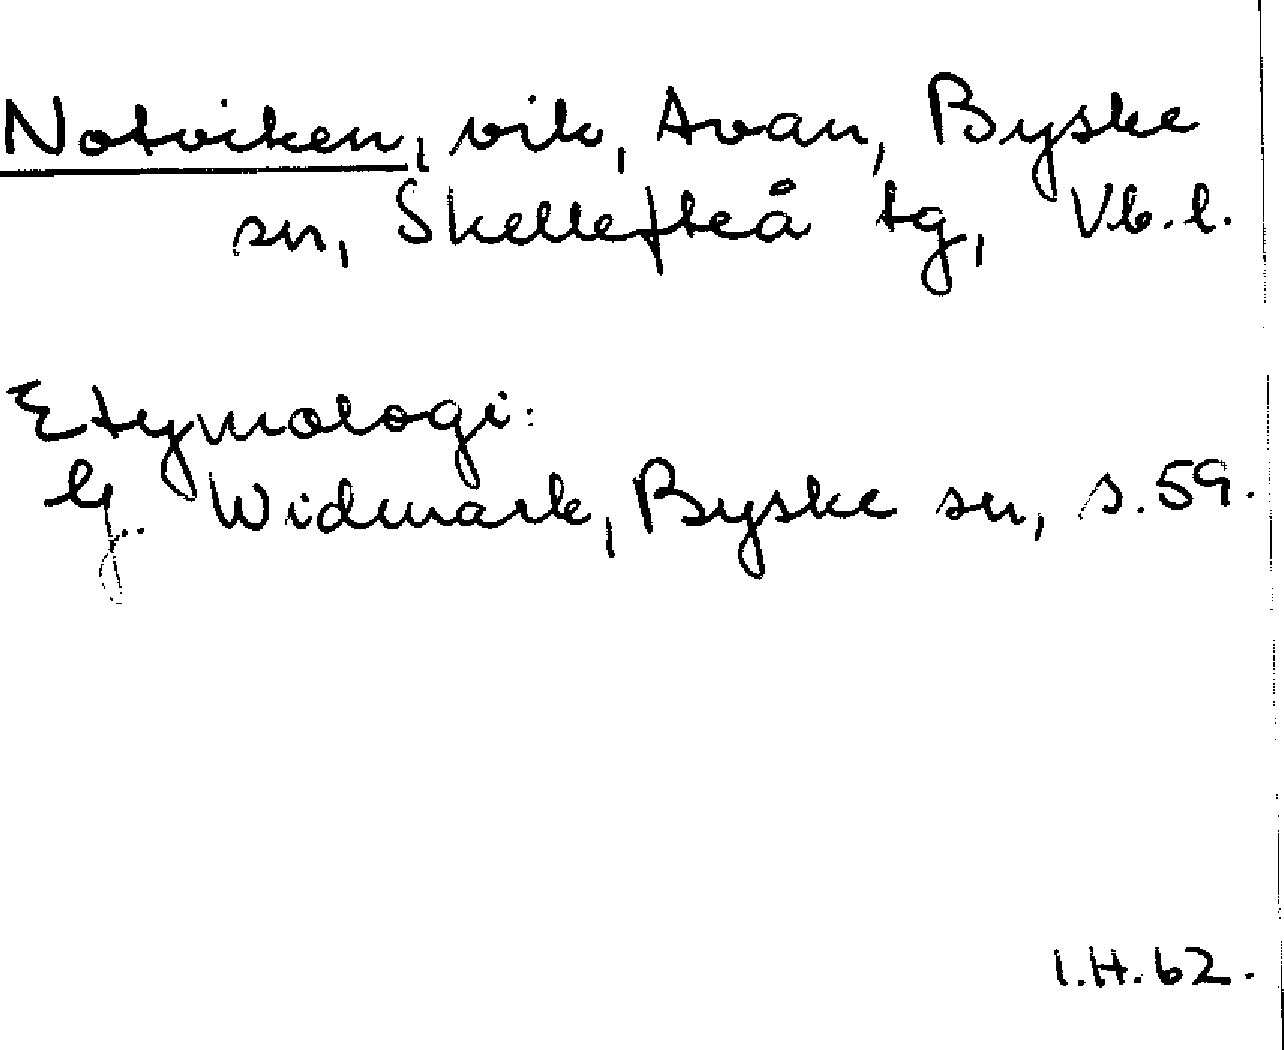 Notviken, vik, Avan, Byske
sn, Skellefteå tg, Vb.l.
Etymologi:
G. Widmark, Byske sn, s. 59.
I.H. 62.